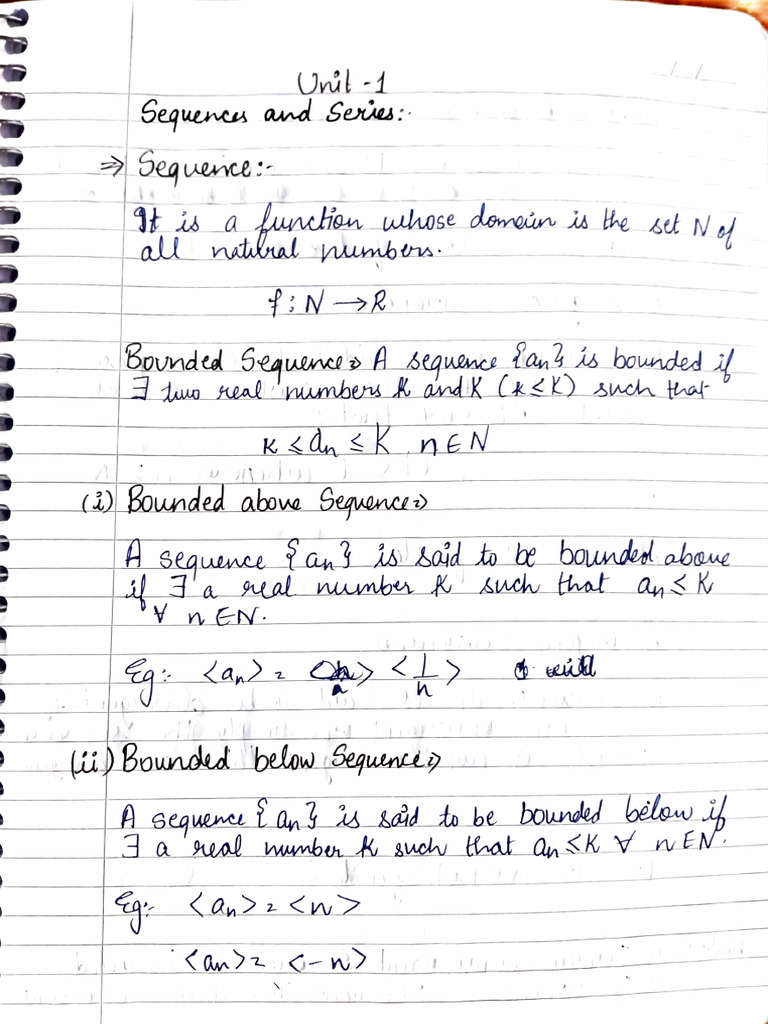 Unit -1
Sequences and Series:-
⇒ Sequence:-
It is a function whose domain is the set N of
all natural numbers.
f : N → R
Bounded Sequence⇒ A sequence {an} is bounded if
∃ two real numbers k and K (k ≤ K) such that
k ≤ an ≤ K n ∈ N
(i) Bounded above Sequence⇒
A sequence {an} is said to be bounded above
if ∃ a real number K such that an ≤ K
∀ n ∈ N.
Eg:- <an> = <1/n>
(ii) Bounded below Sequence⇒
A sequence {an} is said to be bounded below if
∃ a real number k such that an ≤ K ∀ n ∈ N.
Eg:- <an> = <n>
<an> = <-n>